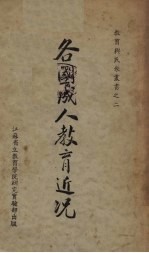 教育與民衆叢書之二
各國成人教育近况
江蘇省立教育學院研究實驗部出版